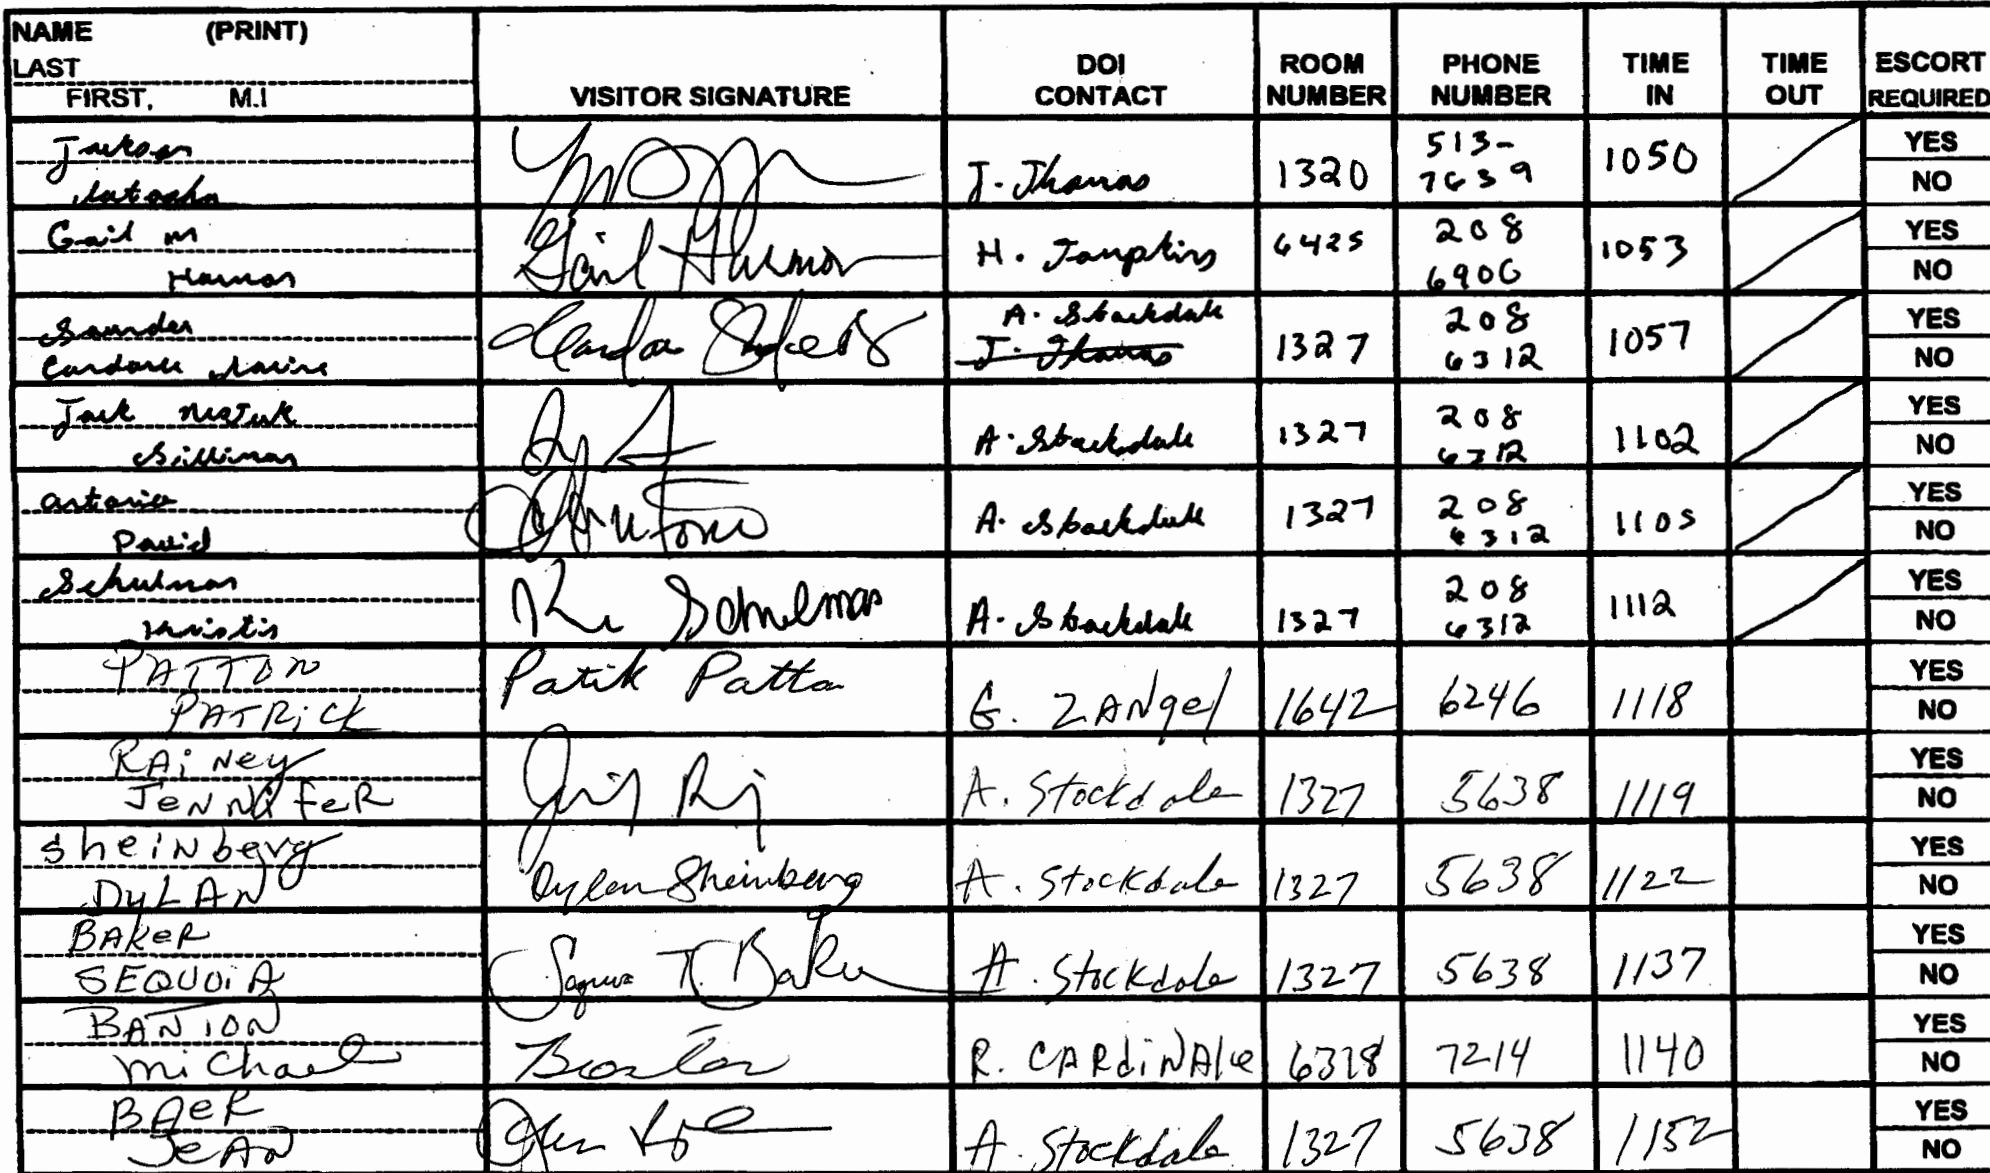 NAME (PRINT)
LAST
FIRST, M.I
VISITOR SIGNATURE
DOI CONTACT
ROOM NUMBER
PHONE NUMBER
TIME IN
TIME OUT
ESCORT REQUIRED
Jackson
Natosha
J. Thomas 1320 513-7639 1050 YES NO
Gail M
Harmon
Gail Harmon H. Tompkins 6425 208 6900 1053 YES NO
Saunders
Candace
A. Stockdale
J. Thomas
1327 208 6312 1057 YES NO
Jack
Silliman
A. Stockdale 1327 208 6312 1102 YES NO
Antonio
David
A. Stockdale 1327 208 6312 1105 YES NO
Schulman
Kristin
Schulman A. Stockdale 1327 208 6312 1112 YES NO
PATTON
PATRiCK
Patrik Patton G. ZANgel 1642 6246 1118 YES NO
RAiNey
JeNNifeR
A. Stockdale 1327 5638 1119 YES NO
SheiNberg
DyLAN
Dylan Sheinberg A. Stockdale 1327 5638 1122 YES NO
BAKeR
SEQUOiA
Sequoia T. Baker A. Stockdale 1327 5638 1137 YES NO
BANTON
MiChael
Banton R. CARdiNAle 6318 7214 1140 YES NO
BAeR
JeAN
A. Stockdale 1327 5638 1152 YES NO